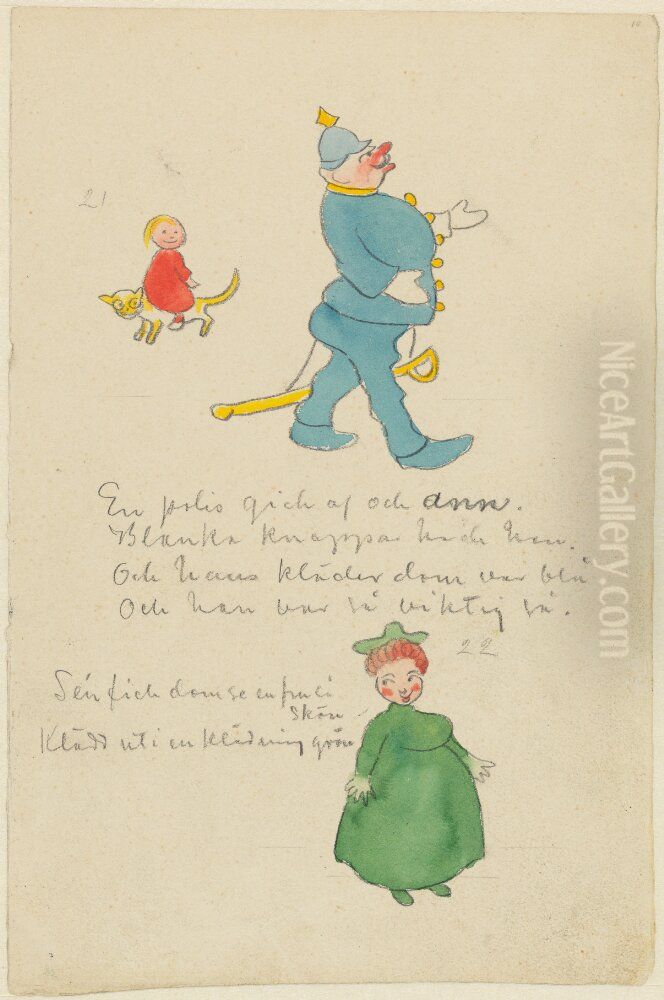 10
21
En polis gick af och ann.
Blanka knappar hade han.
Och hans kläder dom var blå
Och han var så viktig så.
22
Sen fick dom se en fru så
skön
Klädd uti en klädning grön
NiceArtGallery.com